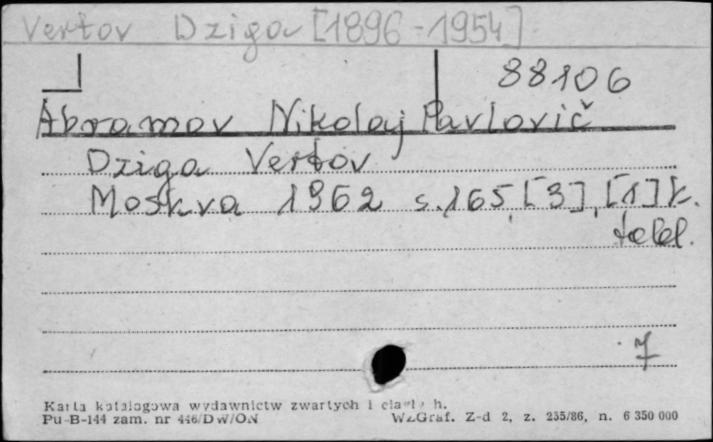 Vertov Dziga [1896-1954]
88106
Abramov Nikolaj Pavlovič
Dziga Vertov
Moskva 1962 s. 165, [3], [1] k.
tabl.
7
Karta katalogowa wydawnictw zwartych i ciągłych.
Pu-B-144 zam. nr 446/DW/ON WZGraf. Z-d 2, z. 235/86, n. 6 350 000